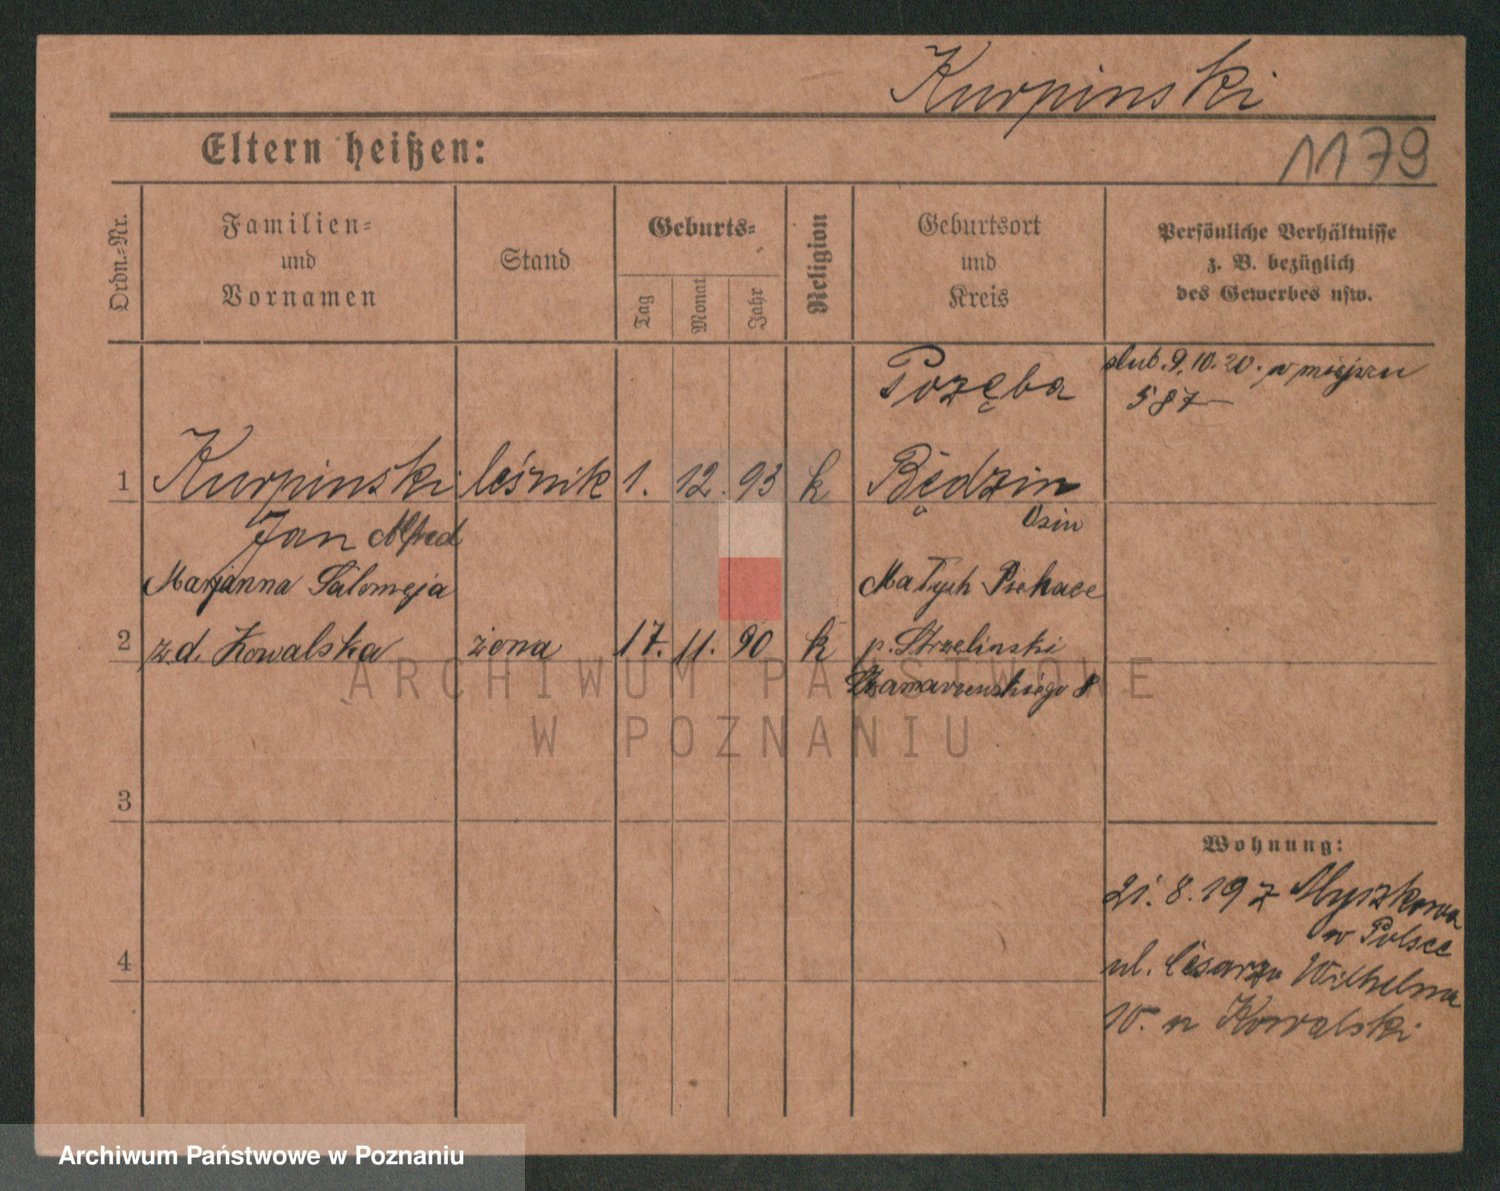 Kurpinski
1179
Eltern heißen:
Ordn.-Nr.
Familien-
und
Vornamen
Stand
Geburts-
Tag
Monat
Jahr
Religion
Geburtsort
und
Kreis
Persönliche Verhältnisse
z. B. bezüglich
des Gewerbes usw.
ślub. 9.10.20. w miejscu
587
1 Kurpinski leśnik 1. 12. 93 k Będzin
Jan Alfred
Marjanna Salomeja Małych Piekace
2 z d. Kowalska żona 17. 11. 90 k p. Strzelinski
3
4
Wohnung:
21. 8. 19 z Myszkowa
w Polsce
ul. Cesarza Wilhelma
10. n Kowalski
ARCHIWUM PAŃSTWOWE
W POZNANIU
Archiwum Państwowe w Poznaniu